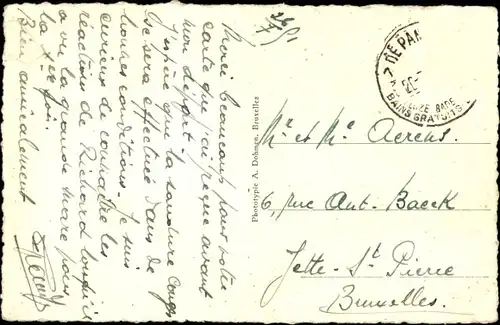 26/7 51
Merci beaucoup pour votre
carte que j'ai reçue avant
mon départ.
J'espère que la soudure Congo
se sera effectuée dans de
bonnes conditions. Je suis
curieux de connaître les
réactions de Richard lorsqu'il
a vu la grande mare pour
la 1ère fois.
Bien amicalement
Phototypie A. Dohmen, Bruxelles
DE PAN
BAINS GRATUITS
Mr et Me Aerens
6, rue Ant. Baeck
Jette-St Pierre
Bruxelles.